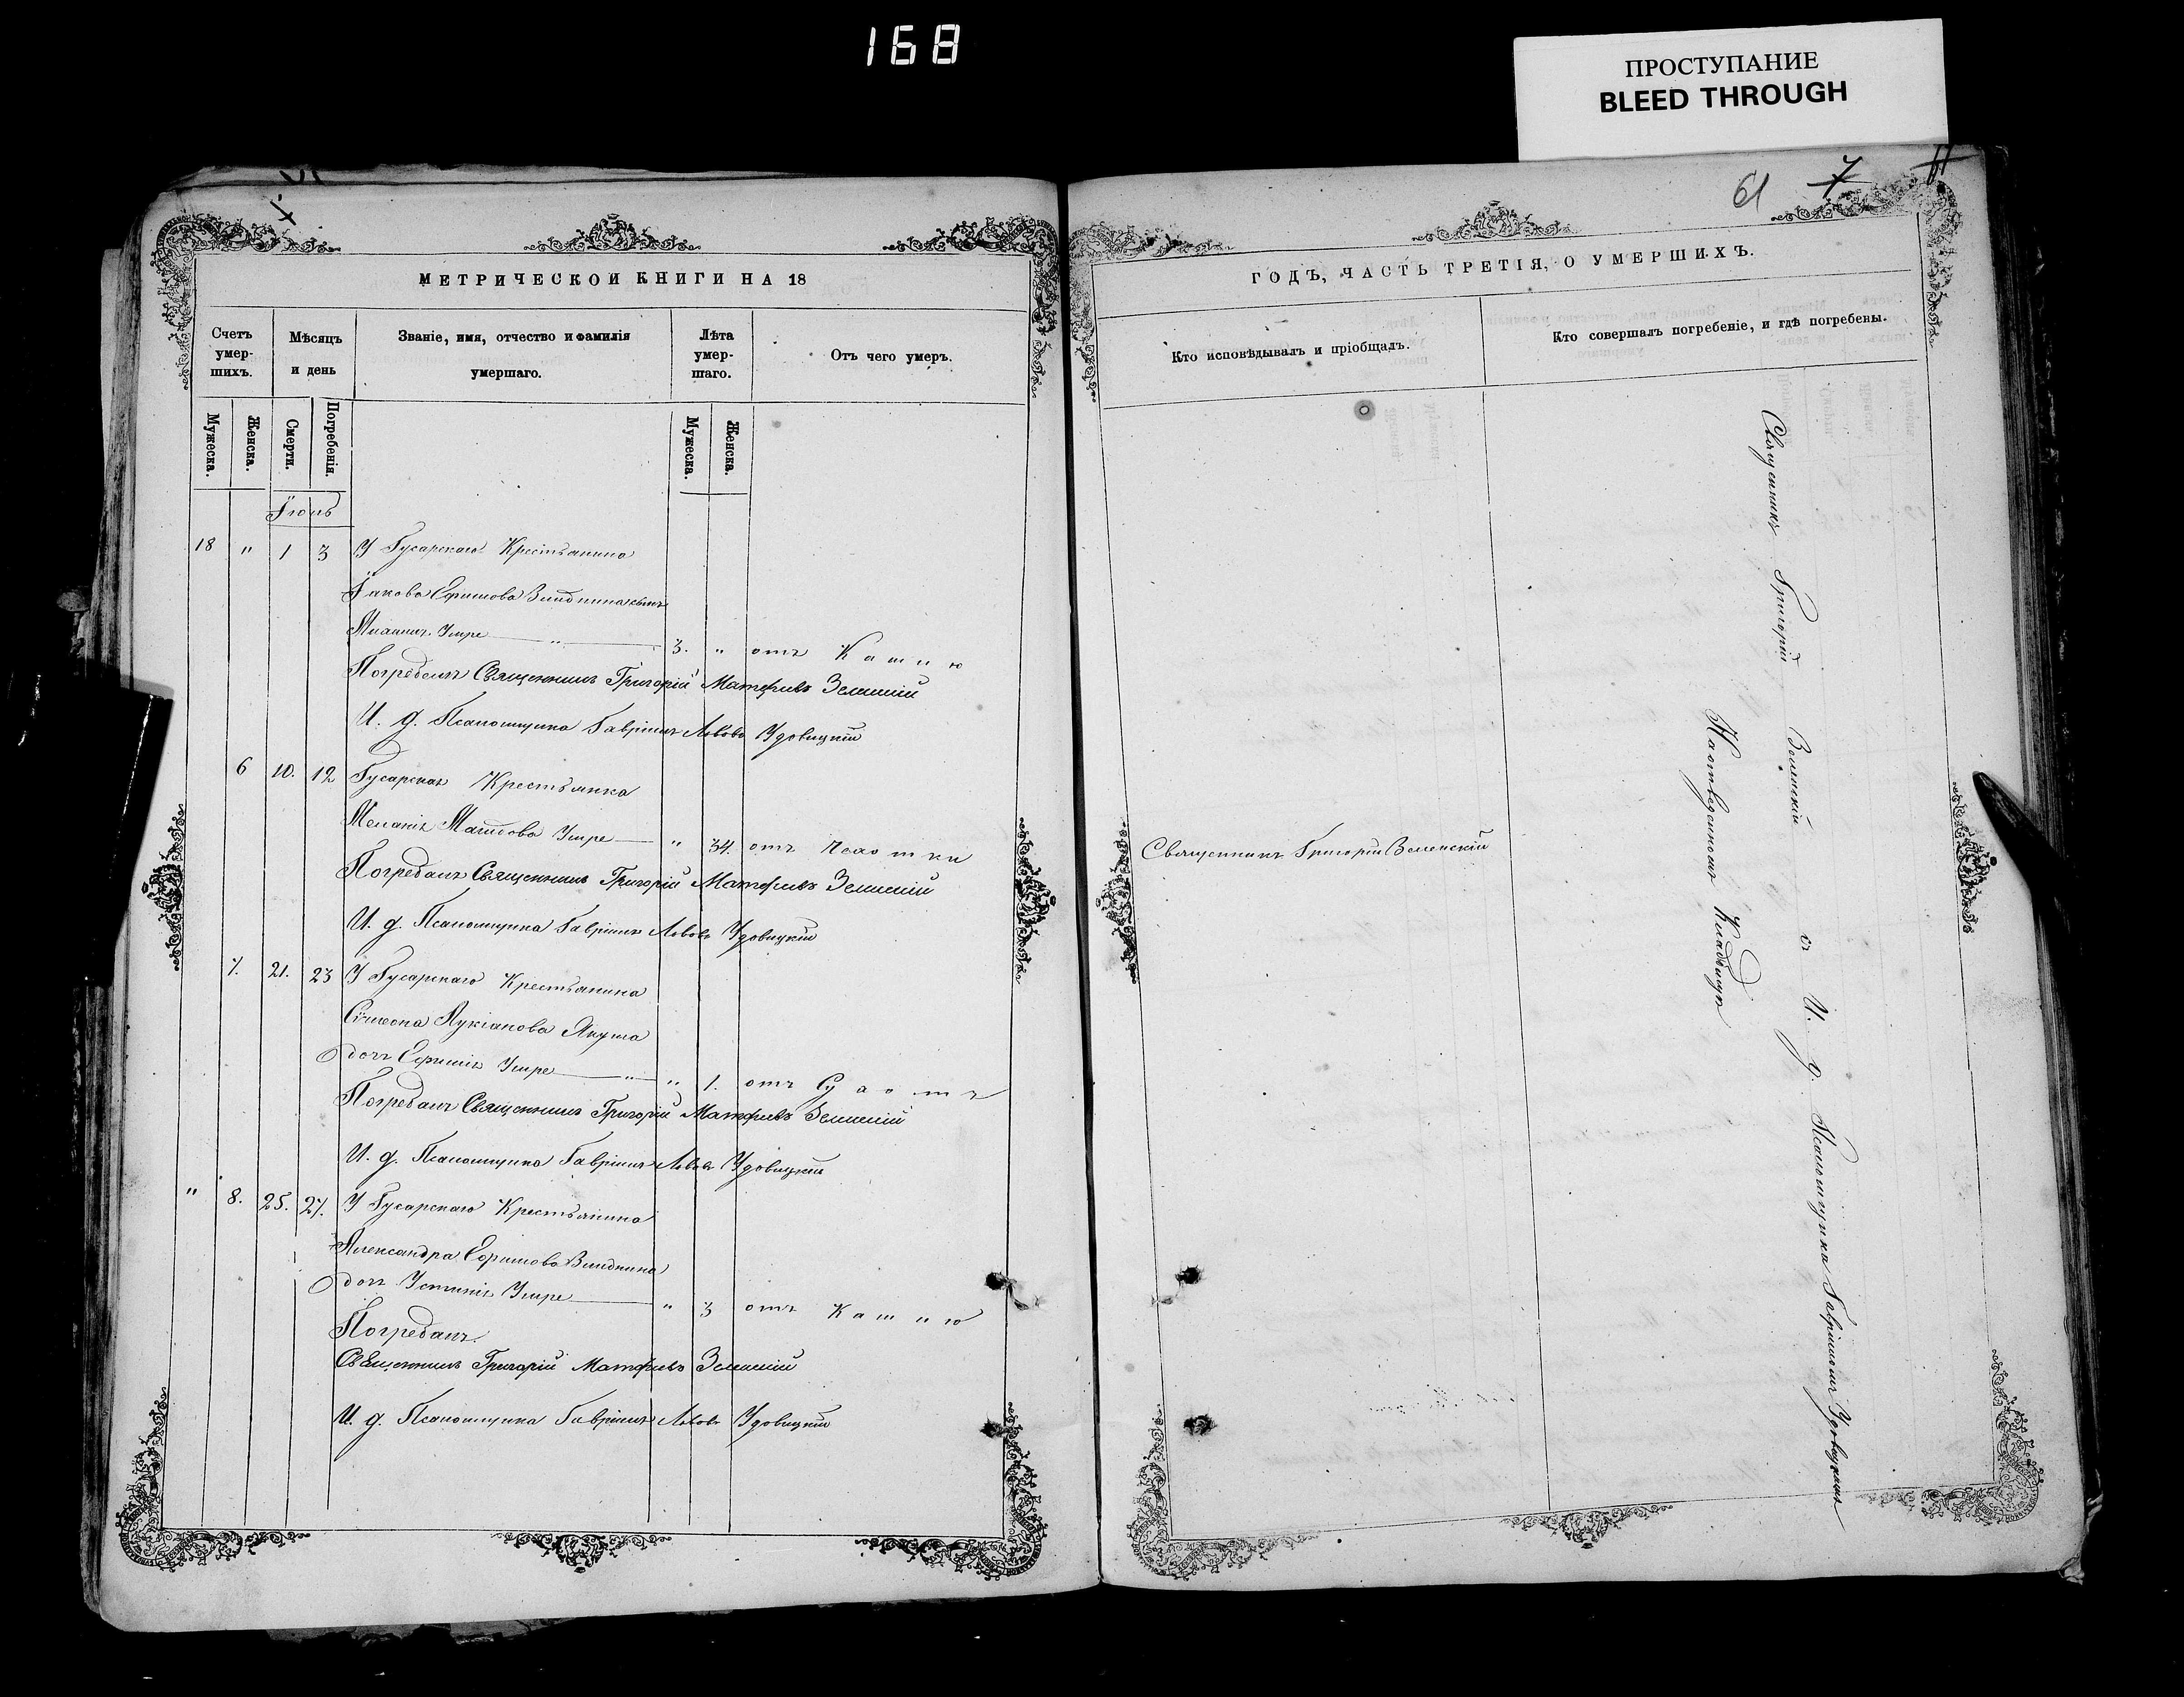 168
ПРОСТУПАНИЕ
BLEED THROUGH
МЕТРИЧЕСКОЙ КНИГИ НА 18
Счетъ умер-шихъ.
Мѣсяцъ и день
Званіе, имя, отчество и фамилія умершаго.
Лѣта умер-шаго.
Отъ чего умеръ.
Мужеска.
Женска.
Смерти.
Погребенія.
Мужеска.
Женска.
Іюнь
18 " 1 3 У Гусарскаго Крестьянина
Іакова Ефимова сынъ
Михаилъ Умре " 3. " отъ Кашлю
Погребенъ Священникъ Григорій Матфіевъ Зеленскій
И. д. Псаломщика Гавріилъ Львовъ Удовицкій
6 10. 12 Гусарская Крестьянка
Меланія Умре " 34. отъ
Погребалъ Священникъ Григорій Матфіевъ Зеленскій
И. д. Псаломщика Гавріилъ Львовъ Удовицкій
7. 21. 23 У Гусарскаго Крестьянина
Сѵмеона Лукіанова
дочь Ефимія Умре " " 1. отъ
Погребалъ Священникъ Григорій Матфіевъ Зеленскій
И. д. Псаломщика Гавріилъ Львовъ Удовицкій
" 8. 25. 27. У Гусарскаго Крестьянина
Александра Ефимова
дочь Устинія Умре " 3 отъ Кашлю
Погребалъ
Священникъ Григорій Матфіевъ Зеленскій
И. д. Псаломщика Гавріилъ Львовъ Удовицкій
61 7
ГОДЪ, ЧАСТЬ ТРЕТІЯ, О УМЕРШИХЪ.
Кто исповѣдывалъ и пріобщалъ.
Кто совершалъ погребеніе, и гдѣ погребены.
Священникъ Григорій Зеленскій
Священникъ Григорій Зеленскій съ И. д. Псаломщика Гавріиломъ Удовицкимъ
На отведенномъ Кладбищѣ